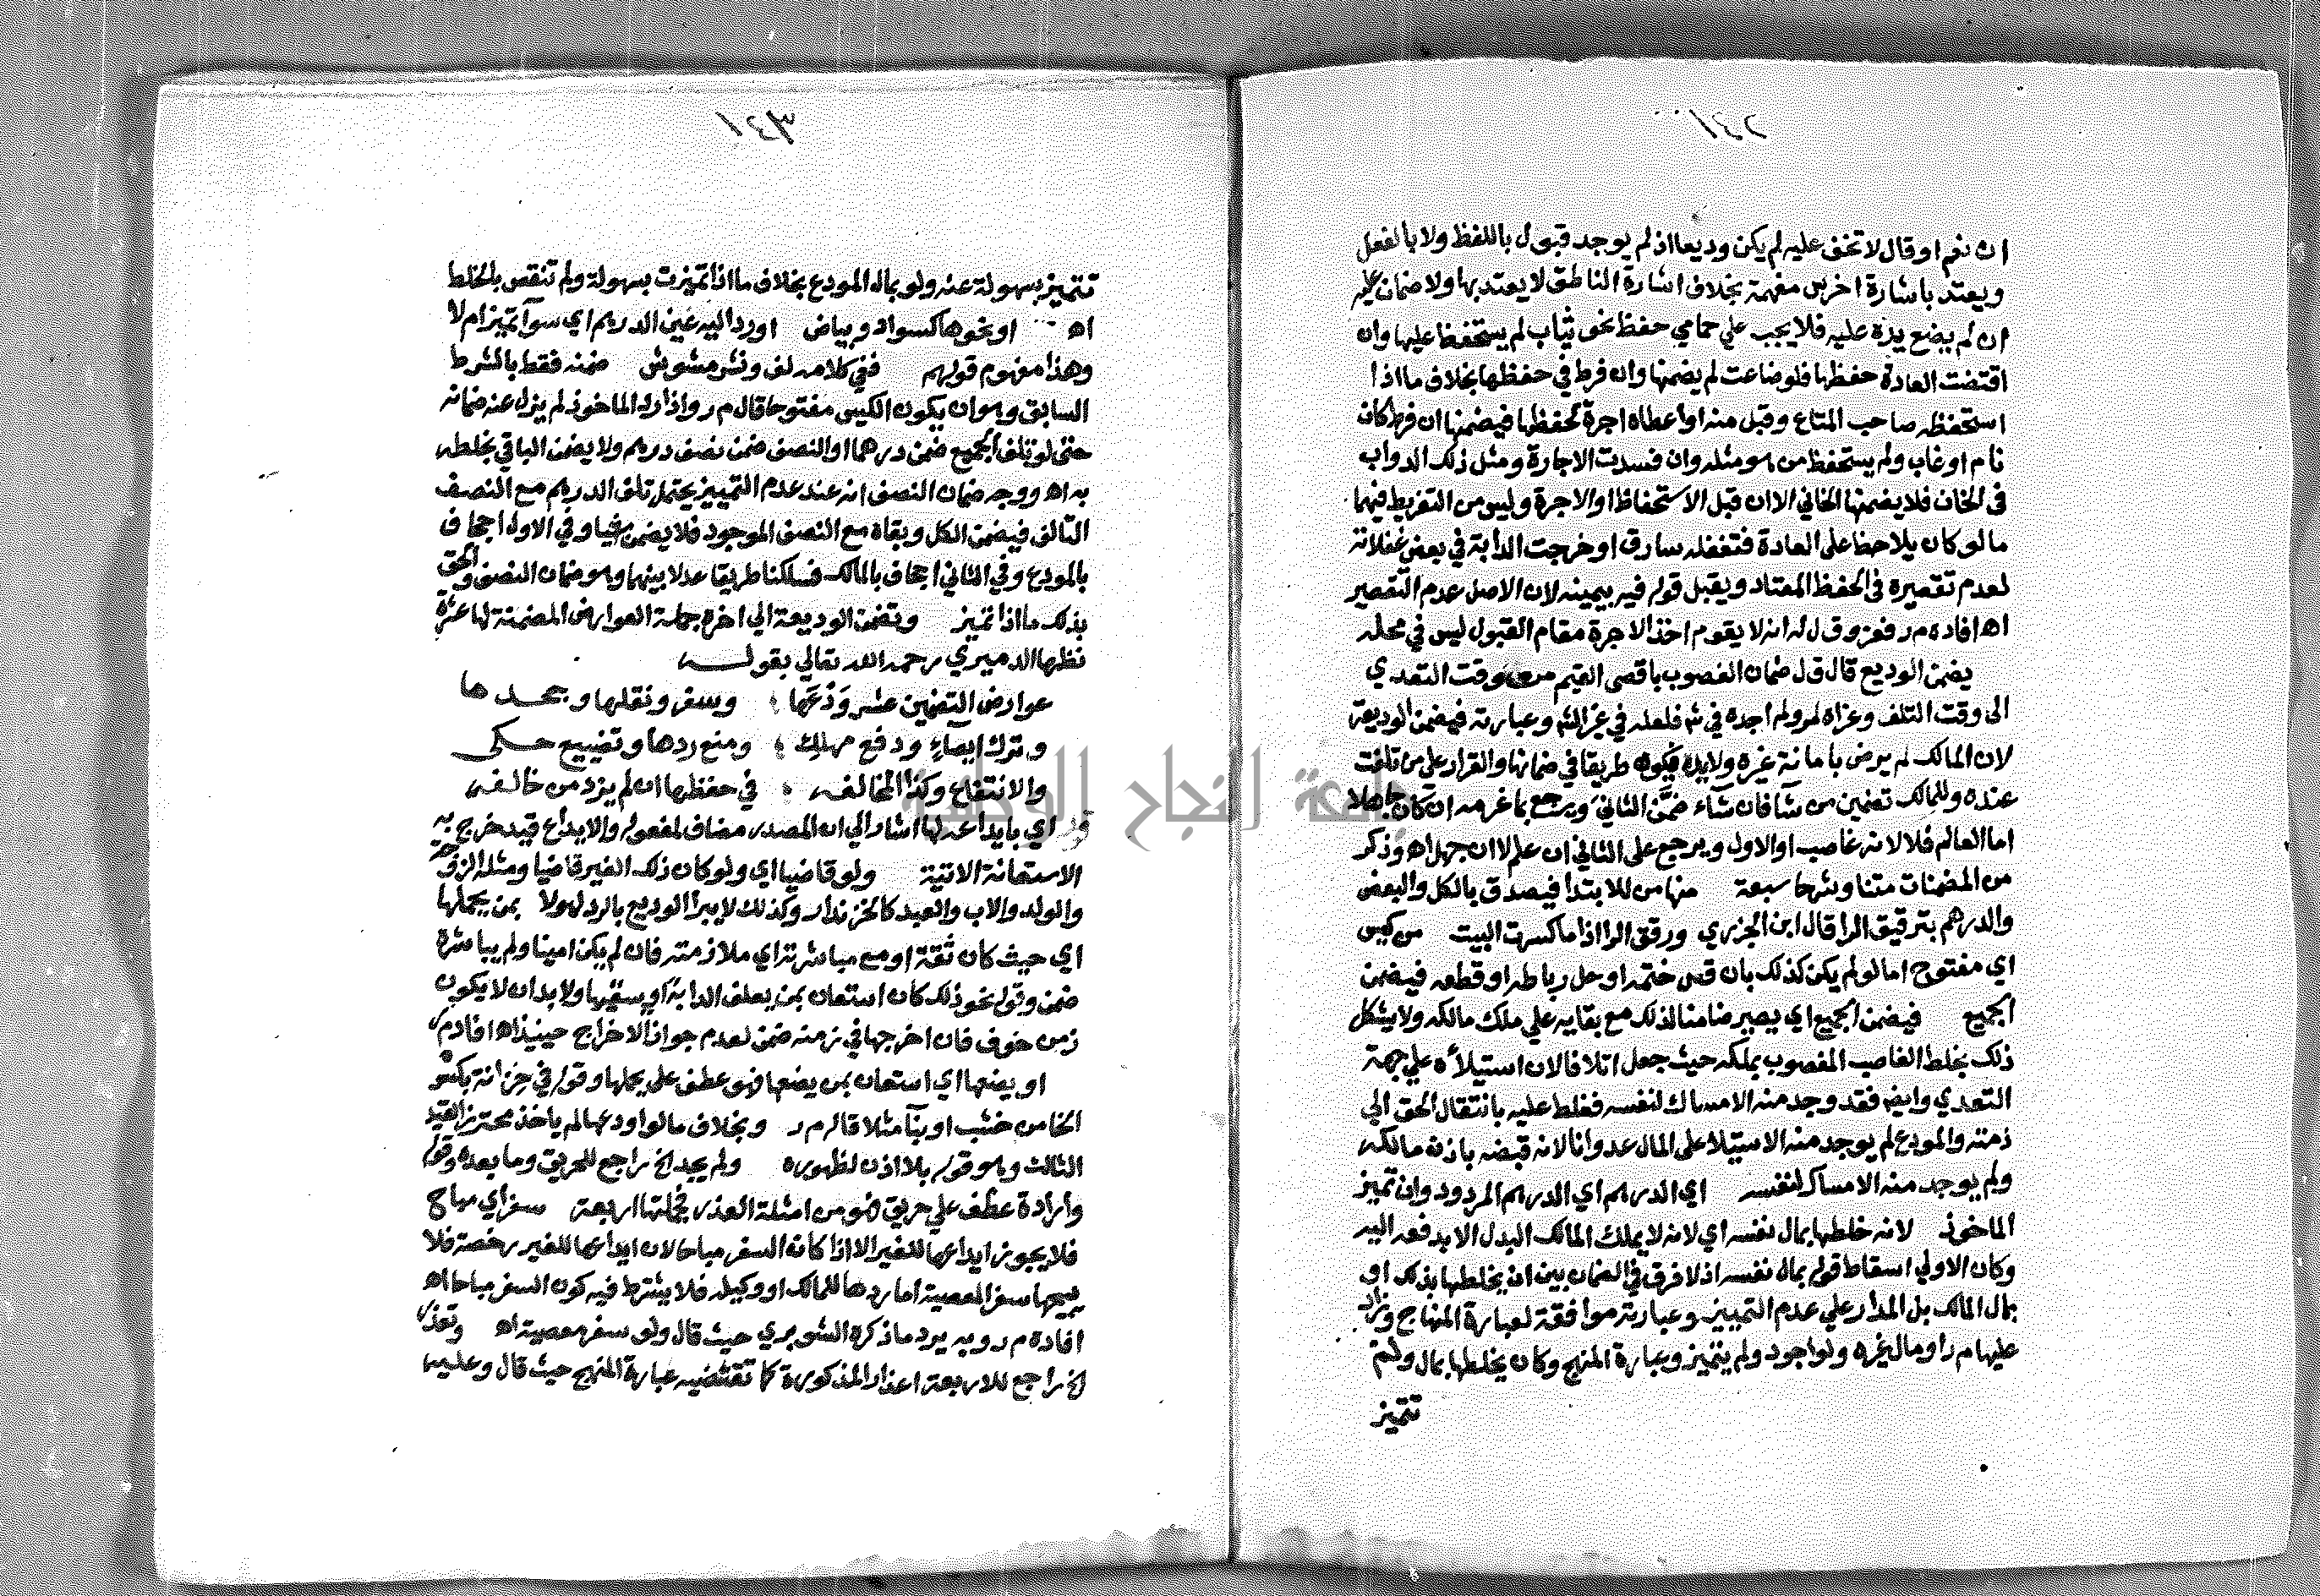 ١٤٢
ان نعم او قال لا تخف عليه لم يكن وديعا اذ لم يوجد قبول باللفظ ولا بالفعل
ويعتد باشارة اخرس مفهمة بخلاف اشارة الناطق لا يعتد بها ولا ضمان عليه
ان لم يضع يده عليه فلا يجب علي حمامي حفظ نحو ثياب لم يستحفظ عليها وان
اقتضت العادة حفظها فلو ضاعت لم يضمنها وان فرط في حفظها بخلاف ما اذا
استحفظه صاحب المتاع وقبل منه او اعطاه اجرة لحفظها فيضمنها ان فرط كان
نام او غاب ولم يستحفظ من هو مثله وان فسدت الاجارة ومثل ذلك الدواب
في الخان فلا يضمنها الخاني الا ان قبل الاستحفاظ او الاجرة وليس من التفريط فيهما
ما لو كان يلاحظ على العادة فتغفله سارق او خرجت الدابة في بعض غفلاته
لعدم تقصيره في الحفظ المعتاد ويقبل قوله فيه بيمينه لان الاصل عدم التقصير
اه افاده م ر فغزو ق ل له انه لا يقوم اخذ الاجرة مقام القبول ليس في محله
يضمن الوديع قال ق ل ضمان الغصوب باقصى القيم من وقت التعدي
الى وقت التلف وعزاه لمر ولم اجده في ش فلعله في غير الش وعبارته فيضمن الوديعة
لان المالك لم يرض بامانة غيره ولا يده فيكون طريقا في ضمانها والقرار علي من تلفت
عنده وللمالك تضمين من شآ فان شآء ضمّن الثاني ويرجع بما غرمه ان كان جاهلا
اما العالم فلا لانه غاصب او الاول ويرجع على الثاني ان علم لا ان جهل اه وذكر
من المضمنات متنا وشرحا سبعة منها من للابتدا فيصدق بالكل والبعض
والدرهم بترقيق الرا قال ابن الجزري ورقق الرا اذا ما كسرت البيت من كيس
اي مفتوح اما لو لم يكن كذلك بان فض ختمه او حل رباطه او قطعه فيضمن
الجميع فيضمن الجميع اي يصير ضامنا لذلك مع بقايه علي ملك مالكه ولا يشكل
ذلك بخلط الغاصب المغصوب بملكه حيث جعل اتلافا لان استيلآه علي جهة
التعدي وايض فقد وجد منه الامساك لنفسه فغلظ عليه بانتقال الحق الي
ذمته والمودع لم يوجد منه الاستيلا على المال عدوانا لانه قبضه باذن مالكه
ولم يوجد منه الامساك لنفسه اي الدرهم اي الدرهم المردود وان تميز
الماخوذ لانه خلطها بمال نفسه اي لانه لا يملك المالك البدل الا بدفعه اليه
وكان الاولي اسقاط قوله بمال نفسه اذ لا فرق في الضمان بين ان يخلطها بذلك او
بمال المالك بل المدار علي عدم التمييز وعبارته موافقة لعبارة المنهاج وزاد
عليها م ر او مال غيره ولو اجود ولم يتميز وعبارة المنهج وكان يخلطها بمال ولم
تتميز
١٤٣
تتميز بسهولة عنه ولو بمال المودع بخلاف ما اذا تميزت بسهولة ولم تنقص بالخلط
اه او نحوها كسواد وبياض او رد اليه عين الدرهم اي سوآ تميز ام لا
وهذا مفهوم قولهم ففي كلامه لف ونشر مشوش ضمنه فقط بالشرط
السابق وهو ان يكون الكيس مفتوحا قال م ر واذا رد الماخوذ لم يزل عنه ضمانه
حتى لو تلف الجميع ضمن درهما او النصف ضمن نصف درهم ولا يضمن الباقي بخلطه
به اه ووجه ضمان النصف انه عند عدم التمييز يحتمل تلف الدرهم مع النصف
التالف فيضمن الكل وبقاه مع النصف الموجود فلا يضمن شيا وفي الاول اجحاف
بالمودع وفي الثاني اجحاف بالمالك فسلكنا طريقا عدلا بينهما وهو ضمان النصف والحق
بذلك ما اذا تميز وتضمن الوديعة الي اخره جملة العوارض المضمنة لها عشرة
نظمها الدميري رحمه الله تعالي بقوله
عوارض التضمين عشر ودعها ؛ وسفر ونقلها وجحدها
وترك ايصاء ودفع مهلك ؛ ومنع ردها وتضييع حكى
والانتفاع وكذا المخالفه ؛ في حفظها ان لم يزد من خالفه
قوله اي بايداعه لها اشار الي ان المصدر مضاف لمفعوله والايداع قيد خرج به
الاستعانة الاتية ولو قاضيا اي ولو كان ذلك الغير قاضيا ومثله الزوجة
والولد والاب والعبد كالخزندار وكذلك لا يبرا الوديع بالرد لهولا بمن يحملها
اي حيث كان ثقة او مع مباشرته اي ملازمته فان لم يكن امينا ولم يباشره
ضمن وقوله نحو ذلك كان استعان بمن يعلف الدابة او يسقيها ولا بد ان لا يكون
زمن خوف فان اخرجها في زمنه ضمن لعدم جواز الاخراج حينيذ اه افاد م ر
او يضعها اي استعان بمن يضعها فهو عطف علي يحملها وقوله في خزانة بكسر
الخا من خشب او بنآ مثلا قاله م ر وبخلاف ما لو اودعها لم ياخذ محترز القيد
الثالث وهو قوله بلا اذن لظهوره ولم يجد الخ راجع للحريق وما بعده وقوله
وارادة عطف علي حريق فهو من امثلة العذر فجملتها اربعة سفر اي مباح
فلا يجوز ايداعها للغير الا اذا كان السفر مباحا لان ايداعها للغير رخصة فلا
يبيحها سفر المعصية اما ردها للمالك او وكيله فلا يشترط فيه كون السفر مباحا اه
افاده م ر وبه يرد ما ذكره الشوبري حيث قال ولو سفر معصية اه وتعذر
الخ راجع للاربعة اعذار المذكورة كما تقتضيه عبارة المنهج حيث قال وعليه